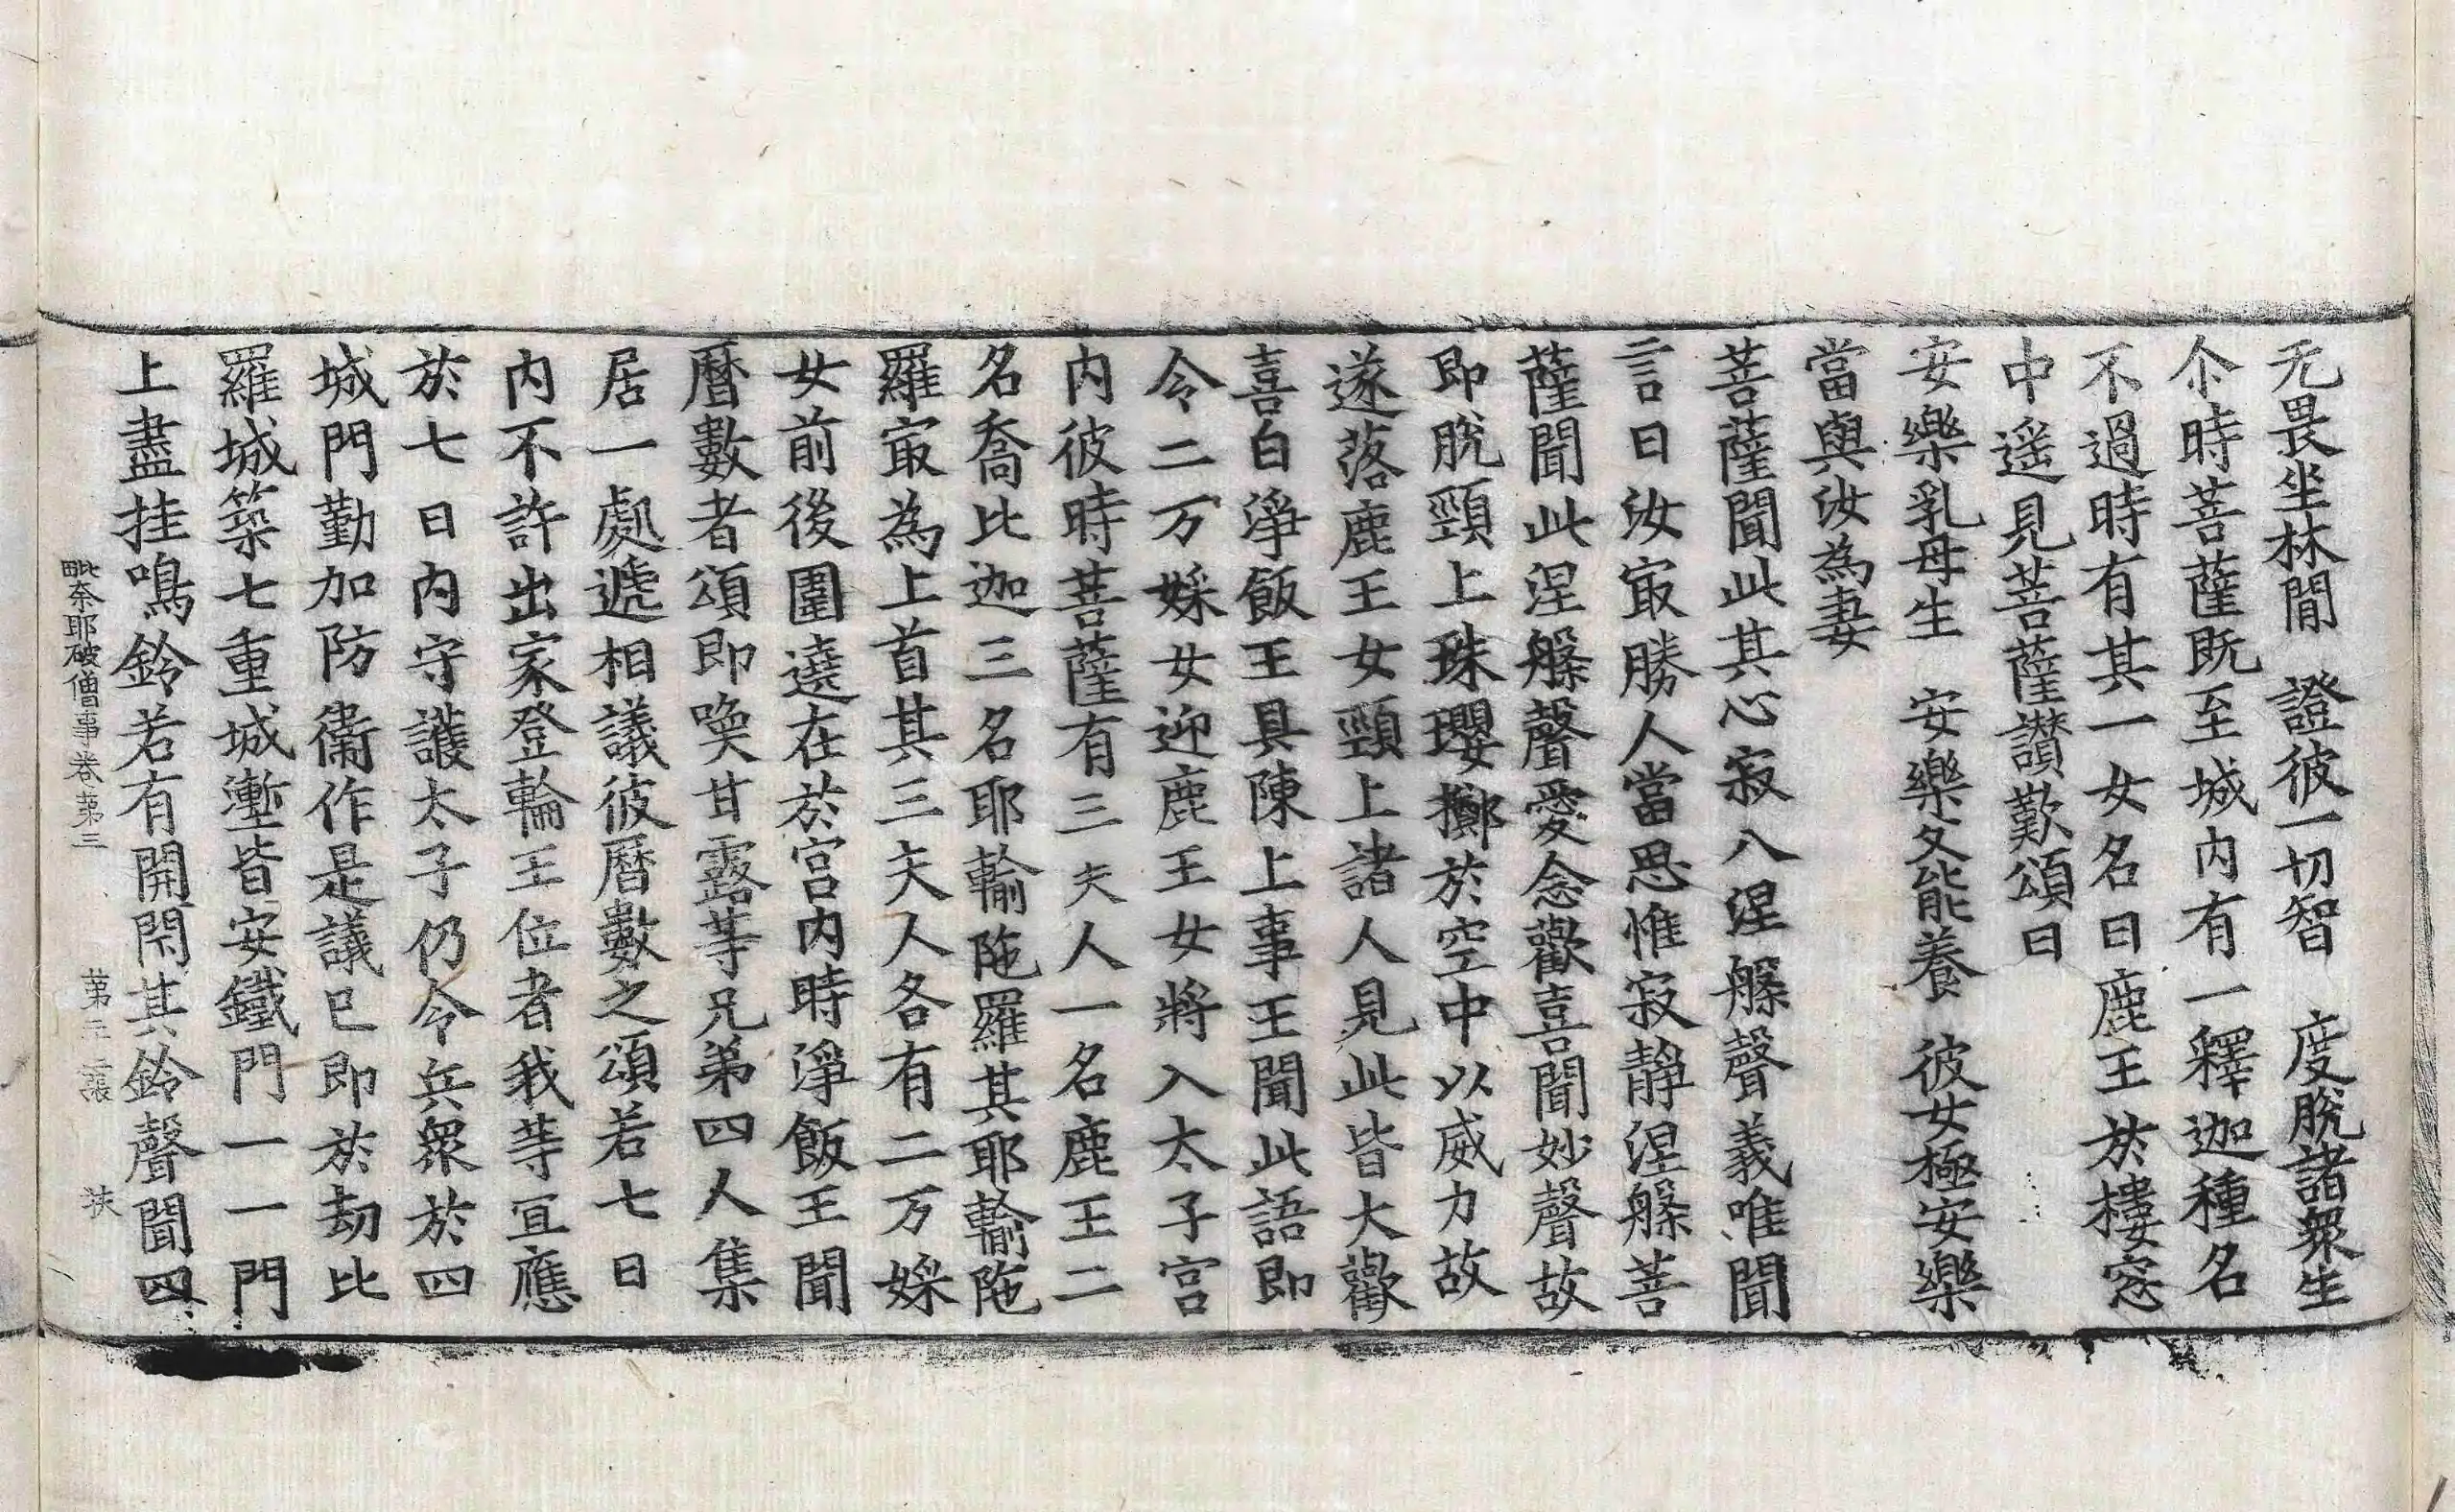 无畏坐林閒　證彼一切智　度脫諸衆生
尒時菩薩既至城內有一釋迦種名
不過時有其一女名曰鹿王於樓窓
中遥見菩薩讃歎頌曰
安樂乳母生　安樂父能養　彼女極安樂
當與汝為妻
菩薩聞此其心寂八涅槃聲義唯聞
言曰汝㝡勝人當思惟寂靜涅槃菩
薩聞此涅槃聲愛念歡喜聞妙聲故
即脫頸上珠瓔擲於空中以威力故
遂落鹿王女頸上諸人見此皆大歡
喜白淨飯王具陳上事王聞此語即
令二万婇女迎鹿王女將入太子宮
內彼時菩薩有三夫人一名鹿王二
名喬比迦三名耶輸陁羅其耶輸陁
羅㝡為上首其三夫人各有二万婇
女前後圍遶在於宮內時淨飯王聞
曆數者頌即喚甘露等兄弟四人集
居一處遞相議彼曆數之頌若七日
內不許出家登輪王位者我等宜應
於七日內守護太子仍令兵衆於四
城門勤加防衞作是議已即於劫比
羅城築七重城壍皆安鐵門一一門
上盡挂鳴鈴若有開閇其鈴聲聞四
毗奈耶破僧事卷苐三　苐二張　扶